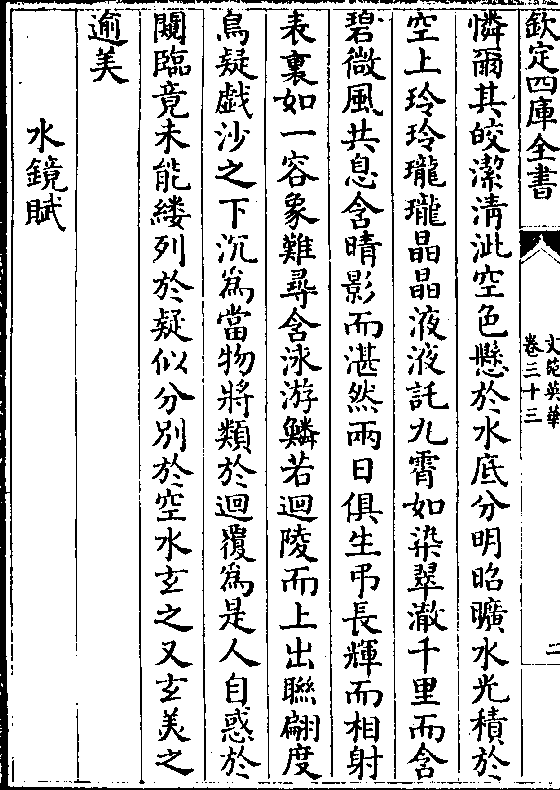 欽定四庫全書
文苑英華
卷三十三
二
憐爾其皎潔清泚空色懸於水底分明昭曠水光積於
空上玲玲瓏瓏晶晶液液託九霄如染翠澈千里而含
碧微風共息含晴影而湛然兩日俱生弔長輝而相射
表裏如一容象難尋含泳游鱗若迴陵而上出聯翩度
鳥疑戲沙之下沉為當物將類於迴覆為是人自惑於
闚臨竟未能縷列於疑似分別於空水玄之又玄美之
逾美
水鏡賦